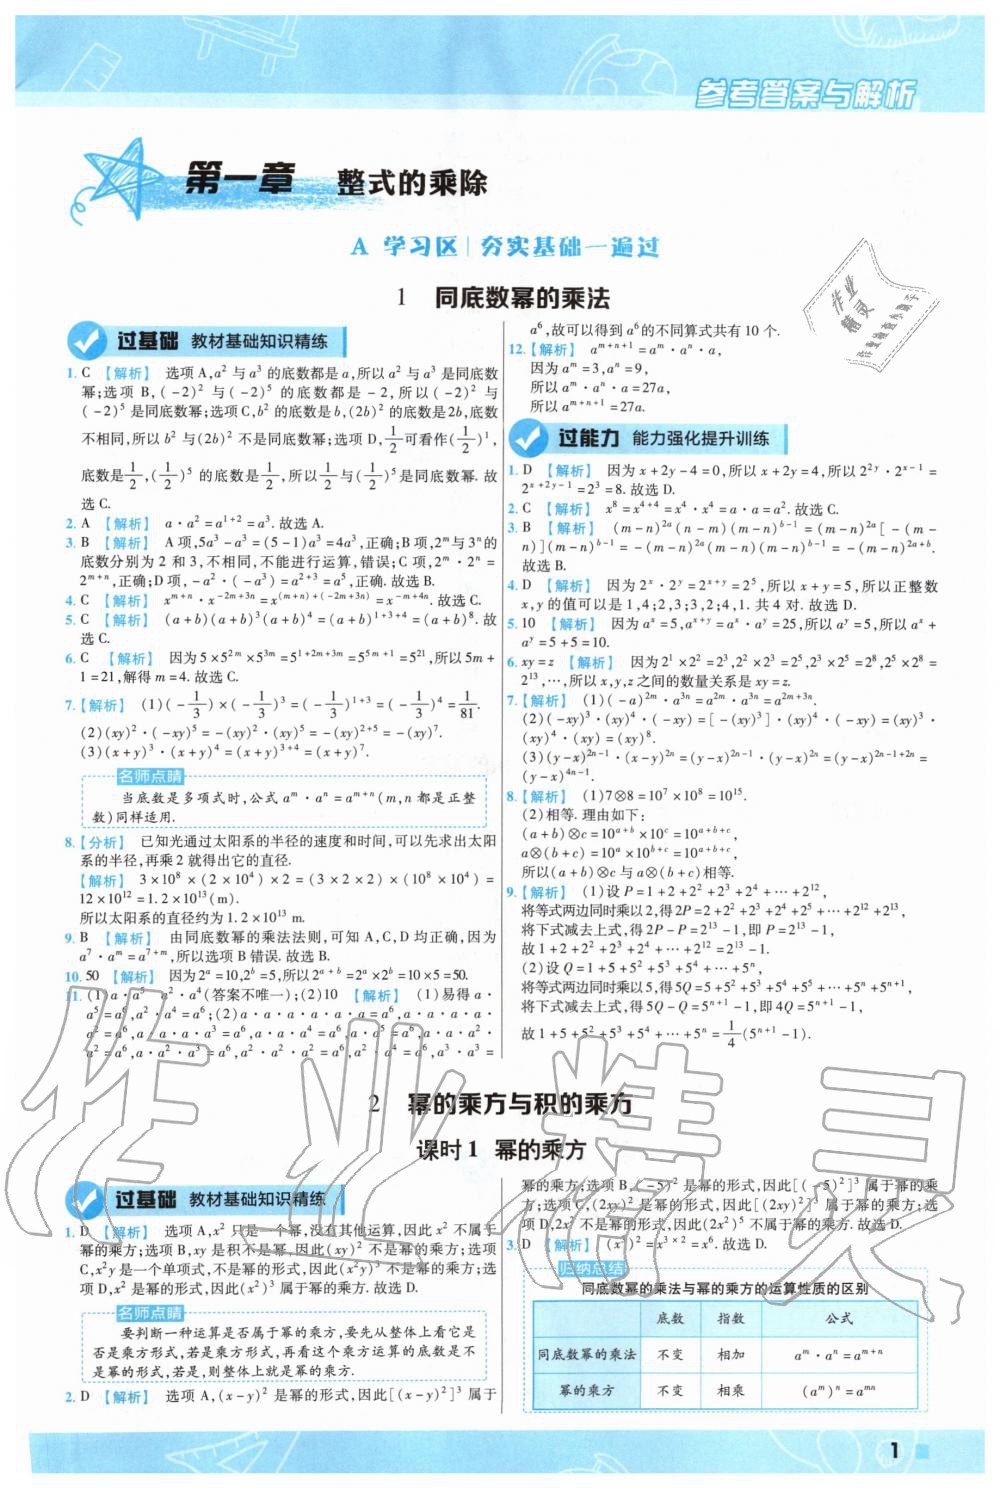 参考答案与解析
第一章 整式的乘除
A 学习区 夯实基础一遍过
1 同底数幂的乘法
过基础 教材基础知识精练
1. C 【解析】 选项 A,a²与 a³的底数都是 a,所以 a²与 a³是同底数
幂;选项 B,(-2)²与(-2)⁵的底数都是-2,所以(-2)²与
(-2)⁵是同底数幂;选项 C,b²的底数是 b,(2b)²的底数是 2b,底数
不相同,所以 b²与(2b)²不是同底数幂;选项 D,1/2可看作(1/2)¹,
底数是1/2,(1/2)⁵的底数是1/2,所以1/2与(1/2)⁵是同底数幂. 故
选 C.
2. A 【解析】 a·a²=a¹⁺²=a³. 故选 A.
3. B 【解析】 A 项,5a³-a³=(5-1)a³=4a³,正确;B 项,2ᵐ与3ⁿ的
底数分别为 2 和 3,不相同,不能进行运算,错误;C 项,2ᵐ·2ⁿ=
2ᵐ⁺ⁿ,正确;D 项,-a²·(-a³)=a²⁺³=a⁵,正确. 故选 B.
4. C 【解析】 x^(m+n)·x^(-2m+3n)=x^((m+n)+(-2m+3n))=x^(-m+4n). 故选 C.
5. C 【解析】 (a+b)(a+b)³(a+b)⁴=(a+b)¹⁺³⁺⁴=(a+b)⁸. 故
选 C.
6. C 【解析】 因为 5×5^(2m)×5^(3m)=5^(1+2m+3m)=5^(5m+1)=5²¹,所以 5m+
1=21,解得 m=4. 故选 C.
7.【解析】 (1)(-1/3)×(-1/3)³=(-1/3)¹⁺³=(-1/3)⁴=1/81.
(2)(xy)²·(-xy)⁵=-(xy)²·(xy)⁵=-(xy)²⁺⁵=-(xy)⁷.
(3)(x+y)³·(x+y)⁴=(x+y)³⁺⁴=(x+y)⁷.
名师点睛
当底数是多项式时,公式 aᵐ·aⁿ=aᵐ⁺ⁿ(m,n 都是正整
数)同样适用.
8.【分析】 已知光通过太阳系的半径的速度和时间,可以先求出太阳
系的半径,再乘 2 就得出它的直径.
【解析】 3×10⁸×(2×10⁴)×2=(3×2×2)×(10⁸×10⁴)=
12×10¹²=1.2×10¹³(m).
所以太阳系的直径约为 1.2×10¹³ m.
9. B 【解析】 由同底数幂的乘法法则,可知 A,C,D 均正确,因为
a⁷·aᵐ=a⁷⁺ᵐ,所以选项 B 错误. 故选 B.
10. 50 【解析】 因为 2ᵃ=10,2ᵇ=5,所以 2ᵃ⁺ᵇ=2ᵃ×2ᵇ=10×5=50.
11. (1)a·a⁵ a²·a⁴(答案不唯一);(2)10 【解析】 (1)易得 a·
a⁵=a⁶,a²·a⁴=a⁶;(2)a·a·a·a·a·a=a⁶,a·a·a·a·
a²=a⁶,a·a·a·a³=a⁶,a·a·a⁴=a⁶,a·a⁵=a⁶,a·a·a²·
a²=a⁶,a·a²·a³=a⁶,a²·a²·a²=a⁶,a²·a⁴=a⁶,a³·a³=
a⁶,故可以得到 a⁶的不同算式共有 10 个.
12.【解析】 a^(m+n+1)=aᵐ·aⁿ·a,
因为 aᵐ=3,aⁿ=9,
所以 aᵐ·aⁿ·a=27a,
所以 a^(m+n+1)=27a.
过能力 能力强化提升训练
1. D 【解析】 因为 x+2y-4=0,所以 x+2y=4,所以 2^(2y)·2^(x-1)=
2^(x+2y-1)=2³=8. 故选 D.
2. C 【解析】 x⁸=x⁴⁺⁴=x⁴·x⁴=a·a=a². 故选 C.
3. B 【解析】 (m-n)^(2a)(n-m)(m-n)^(b-1)=(m-n)^(2a)[-(m-
n)](m-n)^(b-1)=-(m-n)^(2a)(m-n)(m-n)^(b-1)=-(m-n)^(2a+b).
故选 B.
4. D 【解析】 因为 2ˣ·2ʸ=2ˣ⁺ʸ=2⁵,所以 x+y=5,所以正整数
x,y 的值可以是 1,4;2,3;3,2;4,1. 共 4 对. 故选 D.
5. 10 【解析】 因为 aˣ=5,aˣ⁺ʸ=aˣ·aʸ=25,所以 aʸ=5,所以 aˣ+
aʸ=5+5=10.
6. xy=z 【解析】 因为 2¹×2²=2³,2²×2³=2⁵,2³×2⁵=2⁸,2⁵×2⁸=
2¹³,…,所以 x,y,z 之间的数量关系是 xy=z.
7.【解析】 (1)(-a)^(2m)·a^(3n)=a^(2m)·a^(3n)=a^(2m+3n).
(2)(-xy)³·(xy)⁴·(-xy)=[-(xy)³]·(xy)⁴·(-xy)=(xy)³·
(xy)⁴·(xy)=(xy)⁸.
(3)(y-x)^(2n-1)·(x-y)^(2n)=(y-x)^(2n-1)·(y-x)^(2n)=(y-x)^(2n-1+2n)=
(y-x)^(4n-1).
8.【解析】 (1)7⊗8=10⁷×10⁸=10¹⁵.
(2)相等. 理由如下:
(a+b)⊗c=10ᵃ⁺ᵇ×10ᶜ=10ᵃ⁺ᵇ⁺ᶜ,
a⊗(b+c)=10ᵃ×10ᵇ⁺ᶜ=10ᵃ⁺ᵇ⁺ᶜ,
所以(a+b)⊗c 与 a⊗(b+c)相等.
9.【解析】 (1)设 P=1+2+2²+2³+2⁴+…+2¹²,
将等式两边同时乘以 2,得 2P=2+2²+2³+2⁴+2⁵+…+2¹²+2¹³,
将下式减去上式,得 2P-P=2¹³-1,即 P=2¹³-1,
故 1+2+2²+2³+2⁴+…+2¹²=2¹³-1.
(2)设 Q=1+5+5²+5³+5⁴+…+5ⁿ,
将等式两边同时乘以 5,得 5Q=5+5²+5³+5⁴+5⁵+…+5ⁿ+5ⁿ⁺¹,
将下式减去上式,得 5Q-Q=5ⁿ⁺¹-1,即 4Q=5ⁿ⁺¹-1,
故 1+5+5²+5³+5⁴+…+5ⁿ=1/4(5ⁿ⁺¹-1).
2 幂的乘方与积的乘方
课时 1 幂的乘方
过基础 教材基础知识精练
1. D 【解析】 选项 A,x²只是一个幂,没有其他运算,因此 x²不属于
幂的乘方;选项 B,xy 是积不是幂,因此(xy)²不是幂的乘方;选项
C,x²y 是一个单项式,不是幂的形式,因此(x²y)³不是幂的乘方;选
项 D,x²是幂的形式,因此(x²)³属于幂的乘方. 故选 D.
名师点睛
要判断一种运算是否属于幂的乘方,要先从整体上看它是
否是乘方形式,若是乘方形式,再看这个乘方运算的底数是不
是幂的形式,若是,则整体上就是幂的乘方.
2. D 【解析】 选项 A,(x-y)²是幂的形式,因此[(x-y)²]³属于
幂的乘方;选项 B,(-5)²是幂的形式,因此[(-5)²]³属于幂的乘
方;选项 C,(2xy)²是幂的形式,因此[(2xy)²]³属于幂的乘方;选
项 D,2x²不是幂的形式,因此(2x²)⁵不属于幂的乘方. 故选 D.
3. D 【解析】 (x³)²=x³ˣ²=x⁶. 故选 D.
归纳总结
同底数幂的乘法与幂的乘方的运算性质的区别
底数 指数 公式
同底数幂的乘法 不变 相加 aᵐ·aⁿ=aᵐ⁺ⁿ
幂的乘方 不变 相乘 (aᵐ)ⁿ=aᵐⁿ
1
作业精灵